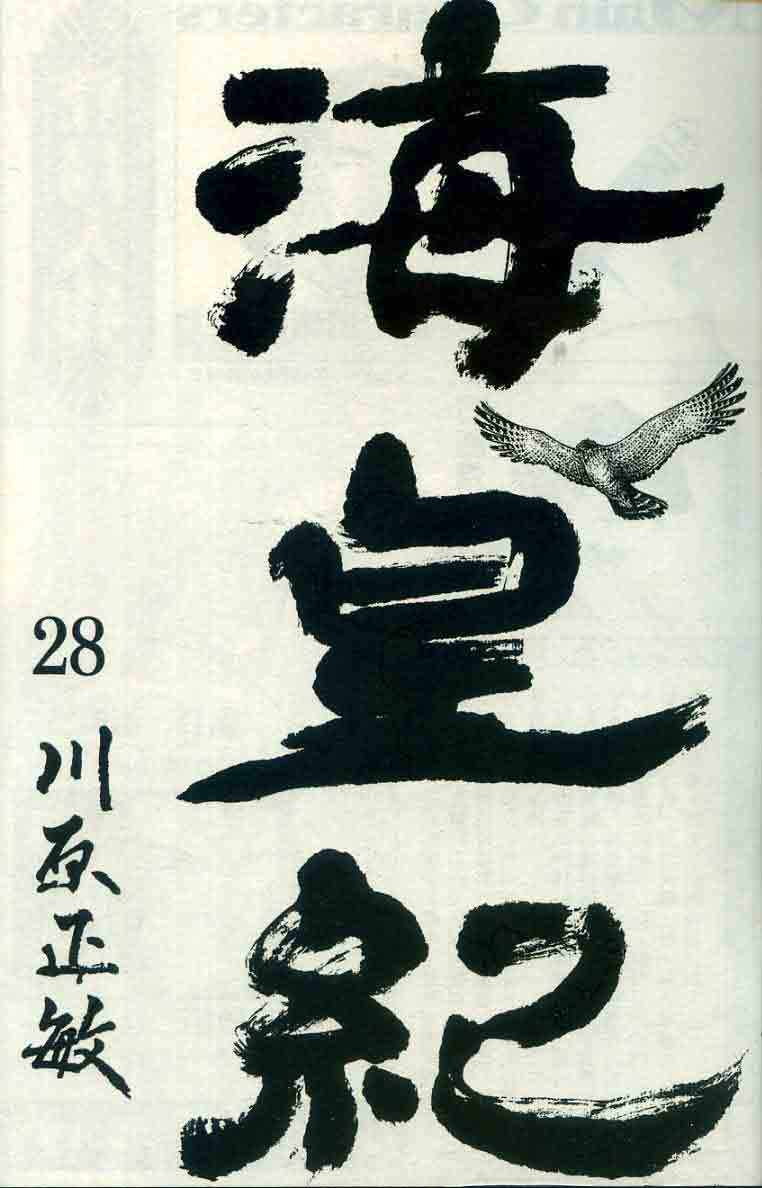 海皇紀
28
川原正敏